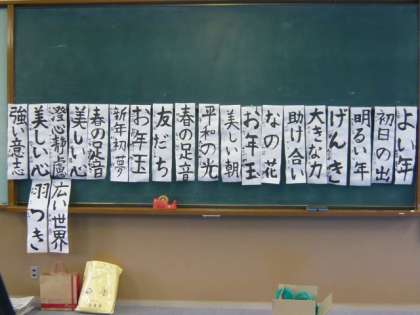 よい年
初日の出
明るい年
げんき
大きな力
助け合い
なの花
お年玉
美しい朝
平和の光
春の足音
友だち
お年玉
新年初夢
春の足音
美しい心
澄心静慮
美しい心
強い意志
広い世界
羽つき